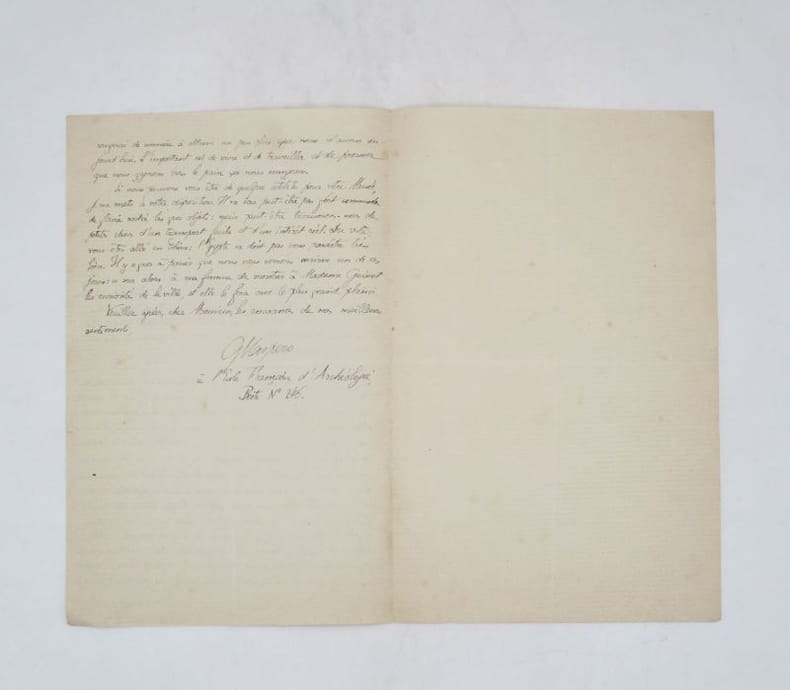 de manière à attein un peu plus que nous n'avons au-
jourd'hui. L'important est de vivre et de travailler et de prouver
que nous gagnons bien le pain que nous mangeons.
Si nous pouvons vous être de quelque utilité pour votre Musée,
je me mets à votre disposition. Il ne sera peut-être pas fort commode
de faire sortir les gros objets: mais peut-être trouverons-nous de
petites choses d'un transport facile et d'un intérêt réel.
vous êtes allé en Chine: l'Egypte ne doit pas vous paraître bien
loin. Il y a gros à parier que nous vous verrons arriver un de ces
jours: ce sera alors à ma femme de montrer à Madame Guimet
les curiosités de la ville, et elle le fera avec le plus grand plaisir.
Veuillez agréer, cher Monsieur, les assurances de nos meilleurs
sentiments.
GMaspero
à l'Ecole Française d'Archéologie,
Poste Nº